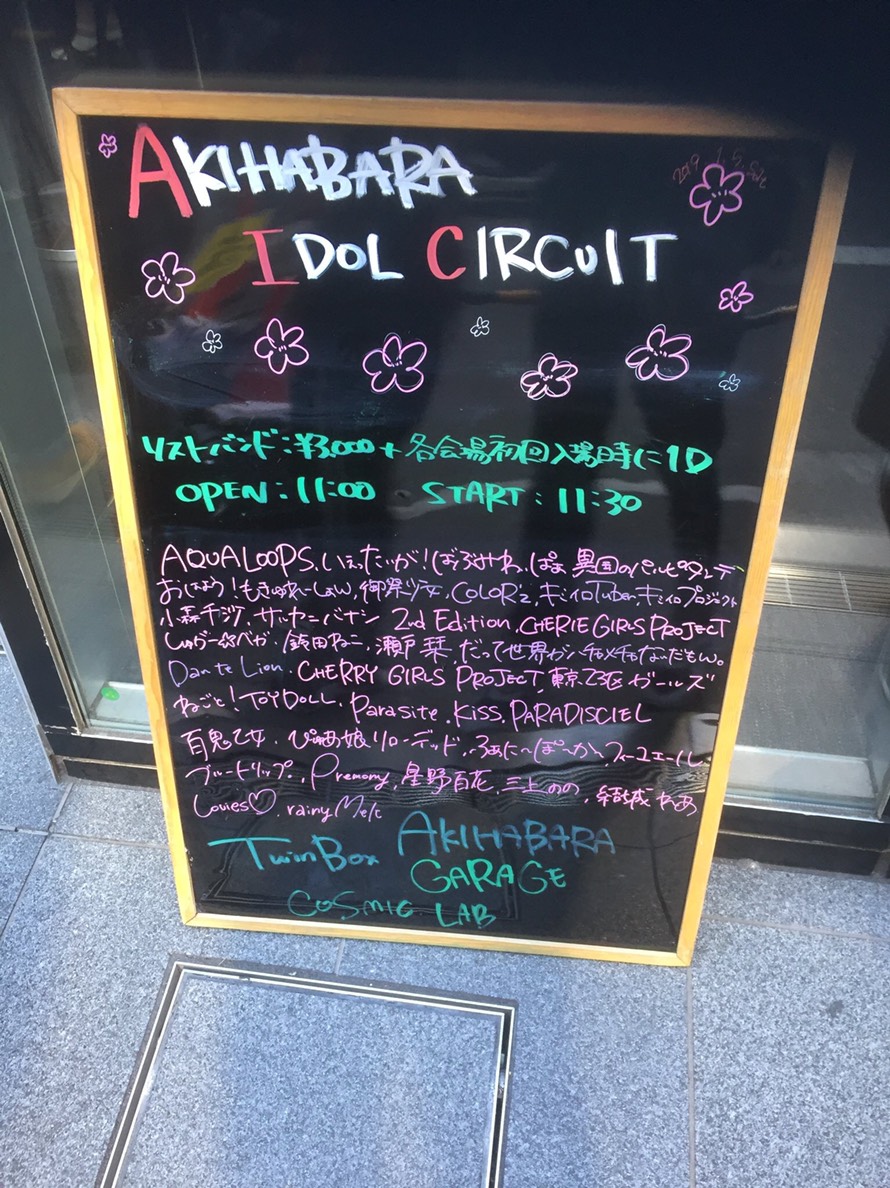 AKIHABARA
2019. 1. 5. Sat
IDOL CIRCUIT
リストバンド:¥3,000 + 各会場初回入場時に1D
OPEN:11:00 START:11:30
AQUALOOPS. いぇったいが!ばぶみわ. ぱぁ 異国のパルピタンテ
おじょう!もきゅもきゅ〜Show, 御祭少女, COLOR'z, キミイロTuber, キミイロプロジェクト
小森千沙, サンセーバナナン 2nd Edition, CHERIE GIRLS PROJECT
しゅがー☆べが, 鈴田ねこ, 瀬戸栞, だって世界がメチャメチャなんだもん。
Dante Lion. CHERRY GIRLS PROJECT, 東京23区ガールズ
ねごと! TOY DOLL. Parasite. KISS. PARADISCIEL
百鬼乙女. ぴゅあ娘リローデッド, ふぁに〜ぽ〜かぁ, フィーユエール
ブルードリップ. Premomy, 星野百花, 三上のの, 結城れあ
Lovies♡. rainy Melt
TwinBox AKIHABARA
GARAGE
COSMIC LAB